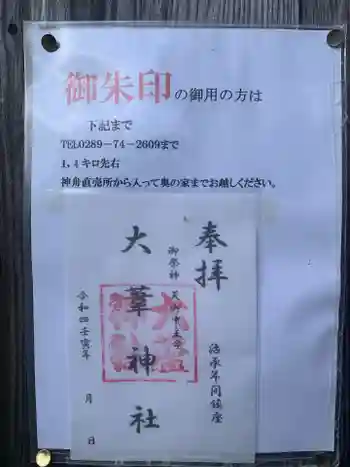 御朱印の御用の方は
下記まで
TEL0289−74−2609まで
1,4キロ先右
神舟直売所から入って奥の家までお越しください。
奉拝
治承年間鎮座
御祭神 天御中主命
大葦神社
令和四壬寅年 月 日